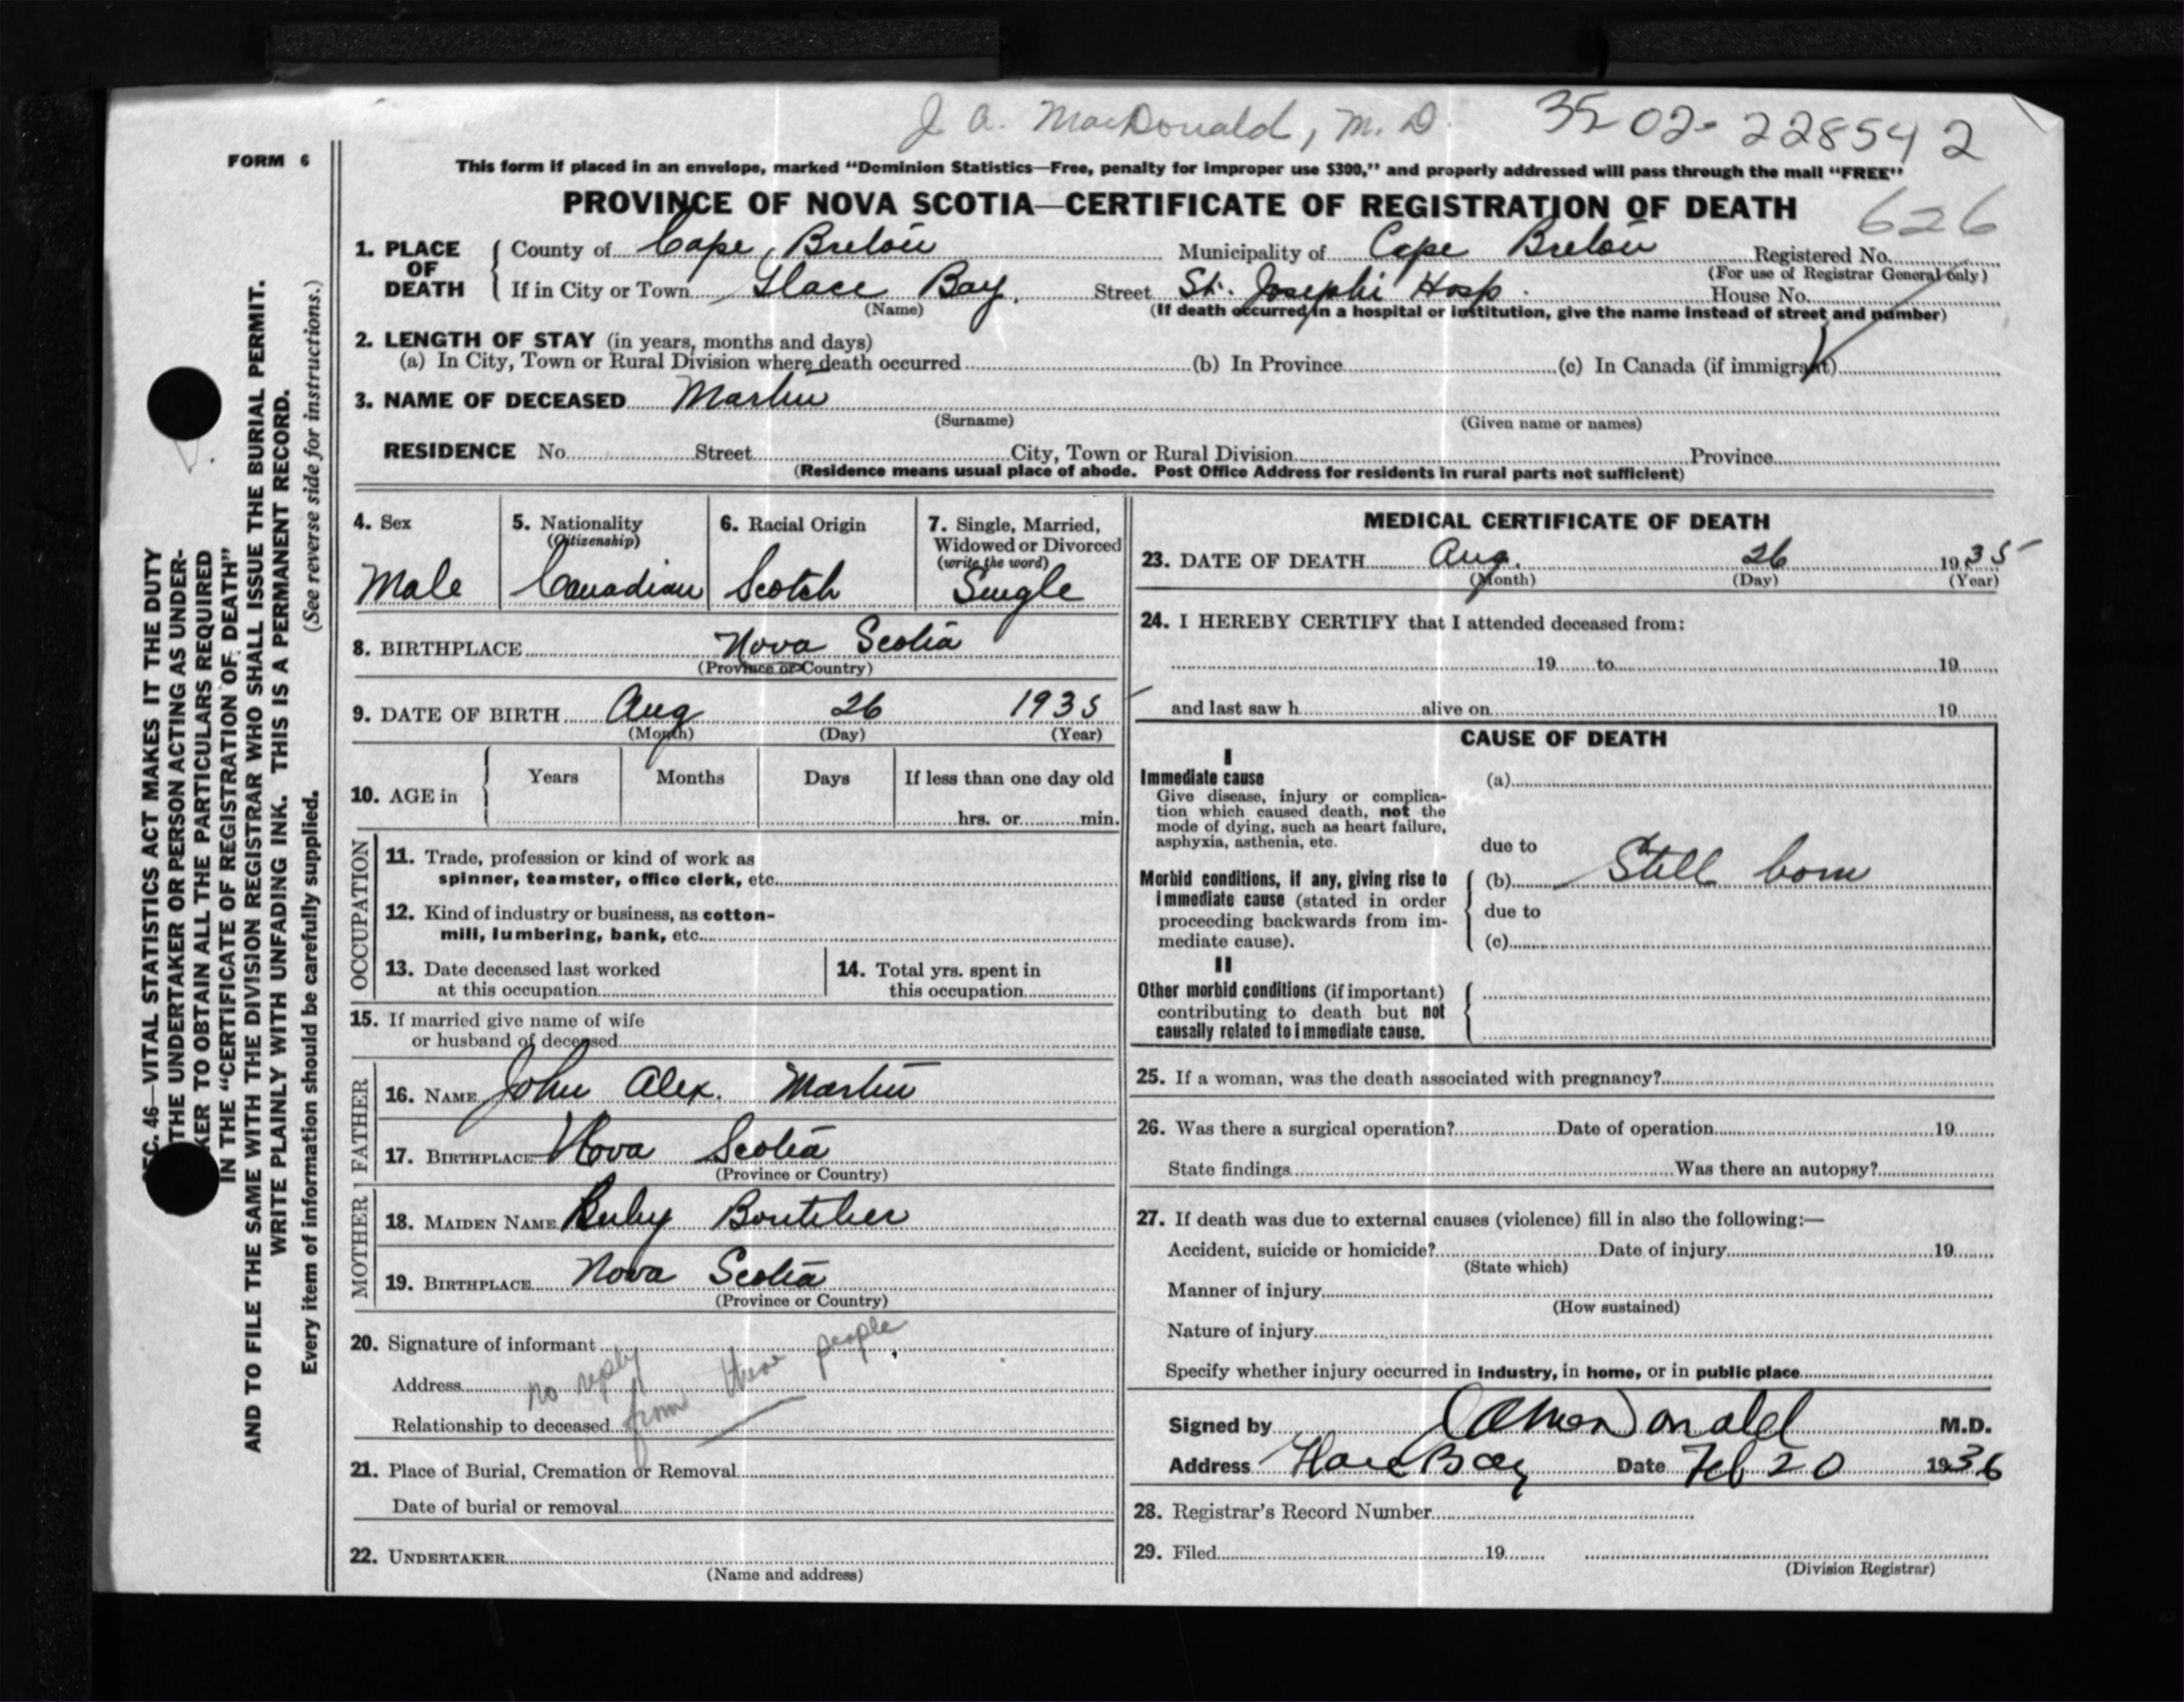 J A. MacDonald, M.D. 3502-228542
FORM 6
This form if placed in an envelope, marked "Dominion Statistics—Free, penalty for improper use $300," and properly addressed will pass through the mail "FREE"
PROVINCE OF NOVA SCOTIA—CERTIFICATE OF REGISTRATION OF DEATH
626
1. PLACE OF DEATH County of Cape Breton Municipality of Cape Breton Registered No.
(For use of Registrar General only)
If in City or Town Glace Bay. Street St. Josephs Hosp. House No.
(Name) (If death occurred in a hospital or institution, give the name instead of street and number)
2. LENGTH OF STAY (in years, months and days)
(a) In City, Town or Rural Division where death occurred (b) In Province (c) In Canada (if immigrant)
3. NAME OF DECEASED Martin
(Surname) (Given name or names)
RESIDENCE No. Street City, Town or Rural Division Province
(Residence means usual place of abode. Post Office Address for residents in rural parts not sufficient)
4. Sex
Male
5. Nationality
(Citizenship)
Canadian
6. Racial Origin
Scotch
7. Single, Married,
Widowed or Divorced
(write the word)
Single
8. BIRTHPLACE Nova Scotia
(Province or Country)
9. DATE OF BIRTH Aug 26 1935
(Month) (Day) (Year)
10. AGE in Years Months Days If less than one day old
hrs. or min.
OCCUPATION
11. Trade, profession or kind of work as
spinner, teamster, office clerk, etc.
12. Kind of industry or business, as cotton-
mill, lumbering, bank, etc.
13. Date deceased last worked
at this occupation
14. Total yrs. spent in
this occupation
15. If married give name of wife
or husband of deceased
FATHER
16. NAME John Alex. Martin
17. BIRTHPLACE Nova Scotia
(Province or Country)
MOTHER
18. MAIDEN NAME Ruby Boutilier
19. BIRTHPLACE Nova Scotia
(Province or Country)
20. Signature of informant
Address
Relationship to deceased
no reply
from these people
21. Place of Burial, Cremation or Removal
Date of burial or removal
22. UNDERTAKER
(Name and address)
MEDICAL CERTIFICATE OF DEATH
23. DATE OF DEATH Aug. 26 1935
(Month) (Day) (Year)
24. I HEREBY CERTIFY that I attended deceased from:
19 to 19
and last saw h alive on 19
CAUSE OF DEATH
I
Immediate cause (a)
Give disease, injury or complica-
tion which caused death, not the
mode of dying, such as heart failure,
asphyxia, asthenia, etc.
due to
Morbid conditions, if any, giving rise to
immediate cause (stated in order
proceeding backwards from im-
mediate cause).
(b) Still born
due to
(c)
II
Other morbid conditions (if important)
contributing to death but not
causally related to immediate cause.
25. If a woman, was the death associated with pregnancy?
26. Was there a surgical operation? Date of operation 19
State findings Was there an autopsy?
27. If death was due to external causes (violence) fill in also the following:—
Accident, suicide or homicide? Date of injury 19
(State which)
Manner of injury
(How sustained)
Nature of injury
Specify whether injury occurred in industry, in home, or in public place
Signed by JA MacDonald M.D.
Address Glace Bay Date Feb 20 1936
28. Registrar's Record Number
29. Filed 19
(Division Registrar)
SEC. 46—VITAL STATISTICS ACT MAKES IT THE DUTY
THE UNDERTAKER OR PERSON ACTING AS UNDER-
KER TO OBTAIN ALL THE PARTICULARS REQUIRED
IN THE "CERTIFICATE OF REGISTRATION OF DEATH"
AND TO FILE THE SAME WITH THE DIVISION REGISTRAR WHO SHALL ISSUE THE BURIAL PERMIT.
WRITE PLAINLY WITH UNFADING INK. THIS IS A PERMANENT RECORD.
Every item of information should be carefully supplied. (See reverse side for instructions.)